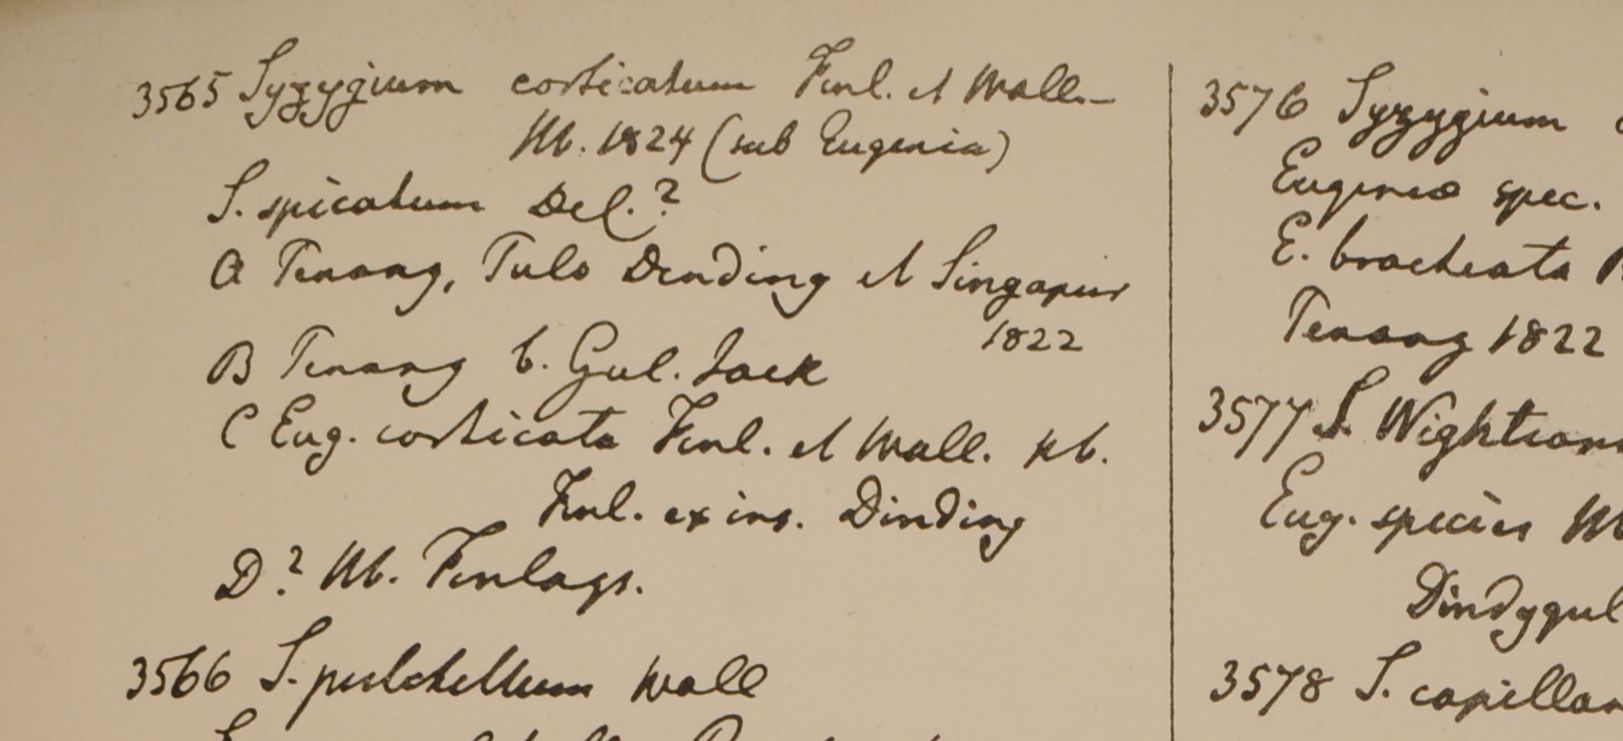 3565 Syzygium corticatum Finl. et Wall.–
Hb. 1824 (sub Eugenia)
S. spicatum Del.?
A Penang, Pulo Dinding et Singapur
1822
B Penang b. Gul. Jack
C Eug. corticata Finl. et Wall. Hb.
Finl. ex ins. Dinding
D? Hb. Finlays.
3566 S. pulchellum Wall
3576 Syzygium
Eugenia spec.
E. bracteata
Penang 1822
3577 S. Wightian
Eug. species
Dindygul
3578 S. capillar